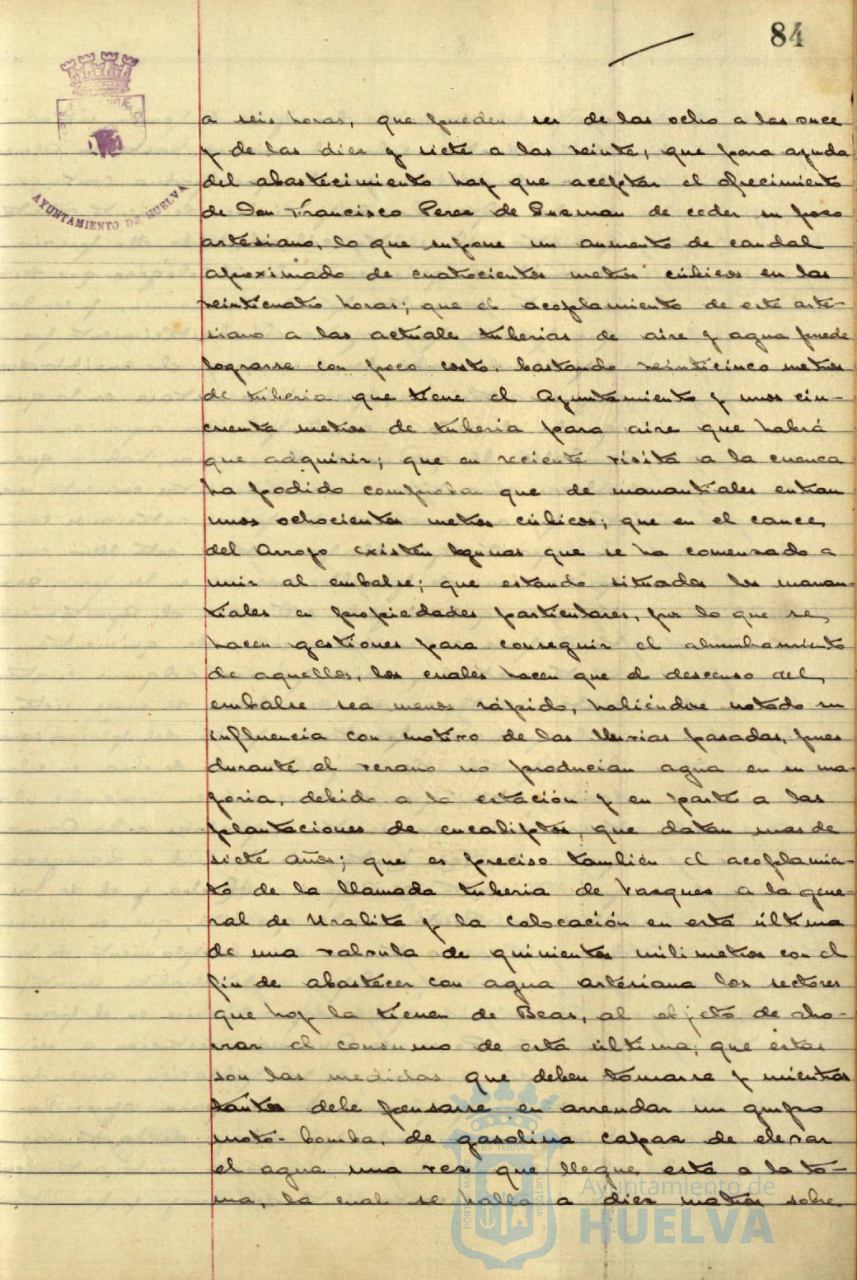 84
AYUNTAMIENTO DE HUELVA
a seis horas, que pueden ser de las ocho a las once
y de las diez y siete a las veinte; que para ayuda
del abastecimiento hay que aceptar el ofrecimiento
de Don Francisco Perez de Guzman de ceder su pozo
artesiano, lo que supone un aumento de caudal
aproximado de cuatrocientos metros cúbicos en las
veinticuatro horas; que el acoplamiento de este arte-
siano a las actuales tuberias de aire y agua puede
lograrse con poco costo, bastando veinticinco metros
de tuberia que tiene el Ayuntamiento y unos cin-
cuenta metros de tuberia para aire que habrá
que adquirir; que en reciente visita a la cuenca
ha podido comprobar que de manantiales entran
unos ochocientos metros cúbicos; que en el cauce
del arroyo existen lagunas que se ha comenzado a
unir al embalse; que estando situados los manan-
tiales en propiedades particulares, por lo que se
hacen gestiones para conseguir el alumbramiento
de aquellos, los cuales hacen que el descenso del
embalse sea menos rápido, habiéndose notado su
influencia con motivo de las lluvias pasadas, pues
durante el verano no producian agua en su ma-
yoria, debido a la estación y en parte a las
plantaciones de eucaliptos, que datan mas de
siete años; que es preciso también el acoplamien-
to de la llamada tuberia de Vazques a la gene-
ral de Uralita y la colocación en esta última
de una valvula de quinientos milimetros con el
fin de abastecer con agua artesiana los sectores
que hoy la tienen de Beas, al objeto de aho-
rrar el consumo de esta última; que estas
son las medidas que deben tomarse y mientras
tanto debe pensarse en arrendar un grupo
moto-bomba de gasolina capaz de elevar
el agua una vez que llegue esta a la to-
ma, la cual se halla a diez metros sobre
Ayuntamiento de
HUELVA